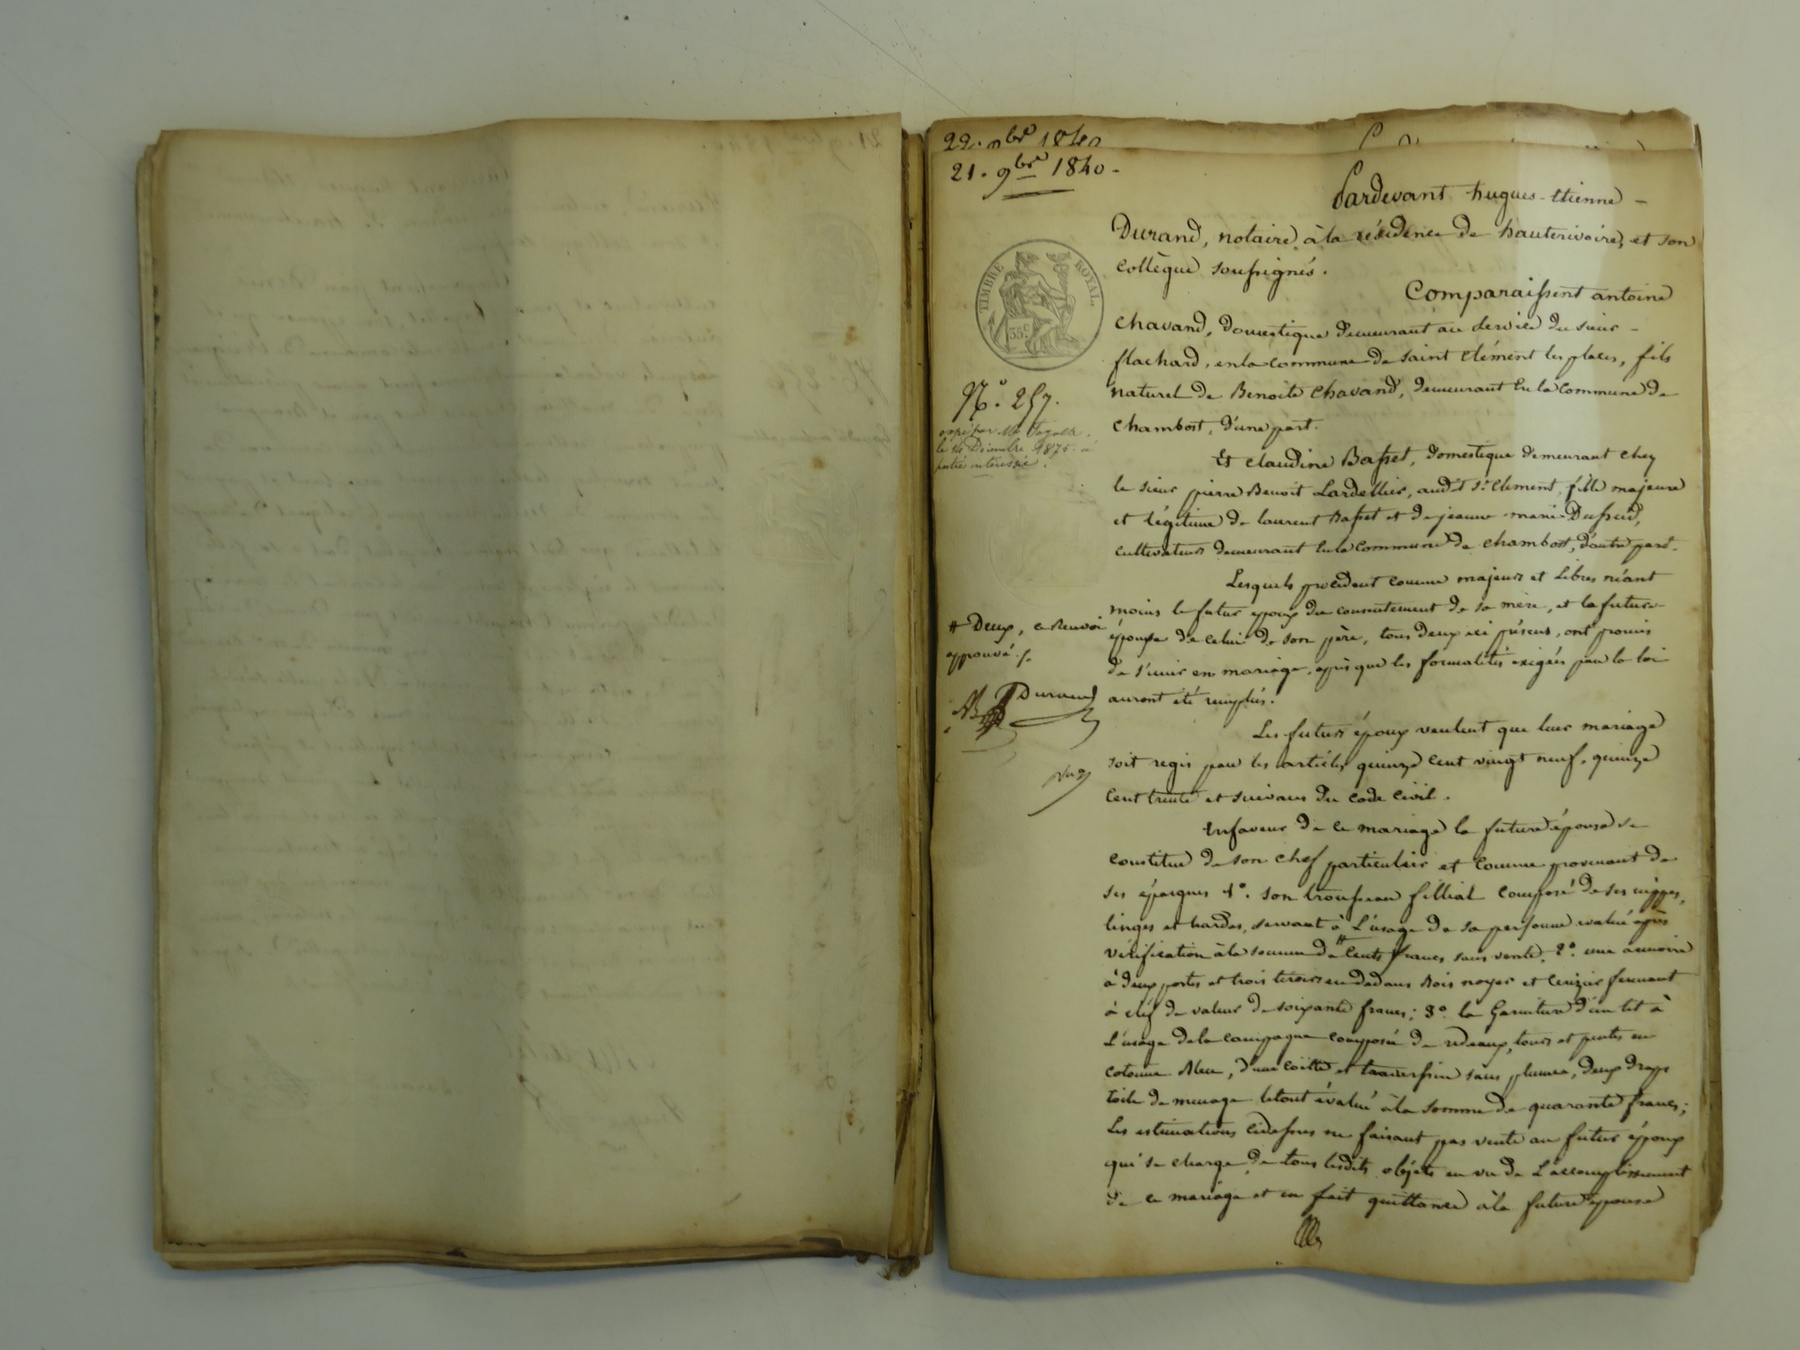 22. 9bre 1840
21. 9bre 1840.
Pardevant hugues-Etienne
Durand, notaire à la résidence de hauterivoire, et son
collègue soussignés.
Comparaissent antoine
Chavand, domestique demeurant au service du sieur
flachard, en la commune de saint Clément les places, fils
naturel de Benoite Chavand, demeurant en la commune de
Chambost, d'une part.
Et Claudine Basset, domestique demeurant chez
le sieur pierre Benoit Lardellier, audt st. Clément, fille majeure
et légitime de laurent Basset et de jeanne-marie Dussud,
cultivateurs demeurant en la commune de Chambost, d'autre part.
Lesquels procédent comme majeurs et libres néant
moins le futur époux du consentement de sa mère, et la future
épouse de celui de son père, tous deux ici présens, ont promis
de s'unir en mariage, après que les formalités exigées par la loi
auront été remplies.
Les futurs époux veulent que leur mariage
soit regis par les articles quinze cent vingt neuf, quinze
cent trente et suivans du code civil.
En faveur de ce mariage la future épouse se
constitue de son chef particulier et comme provenant de
ses épargnes 1o. son trousseau fillial composé de ses nippes,
linges et hardes, servant à l'usage de sa personne évalué après
vérification à la somme de # cents francs sans vente. 2o. une armoire
à deux portes et trois tiroirs en dedans Bois noyer et cerizier fermant
à clef de valeur de soixante francs; 3o. la garniture d'un lit à
l'usage de la campagne composée de rideaux, tours et pentes en
cotonne bleu, d'une coitte et traversin sans plumes, deux draps
toile de menage le tout évalué à la somme de quarante francs;
Les estimations cidessus ne faisant pas vente au futur époux
qui se charge de tous lesdits objets en vu de l'accomplissement
de ce mariage et en fait quittance à la future épouse
TIMBRE ROYAL.
35c.
No. 257.
le 14 Décembre 1875 à
partie intéressée.
# Deux, ce renvoi
approuvé./.
Durand